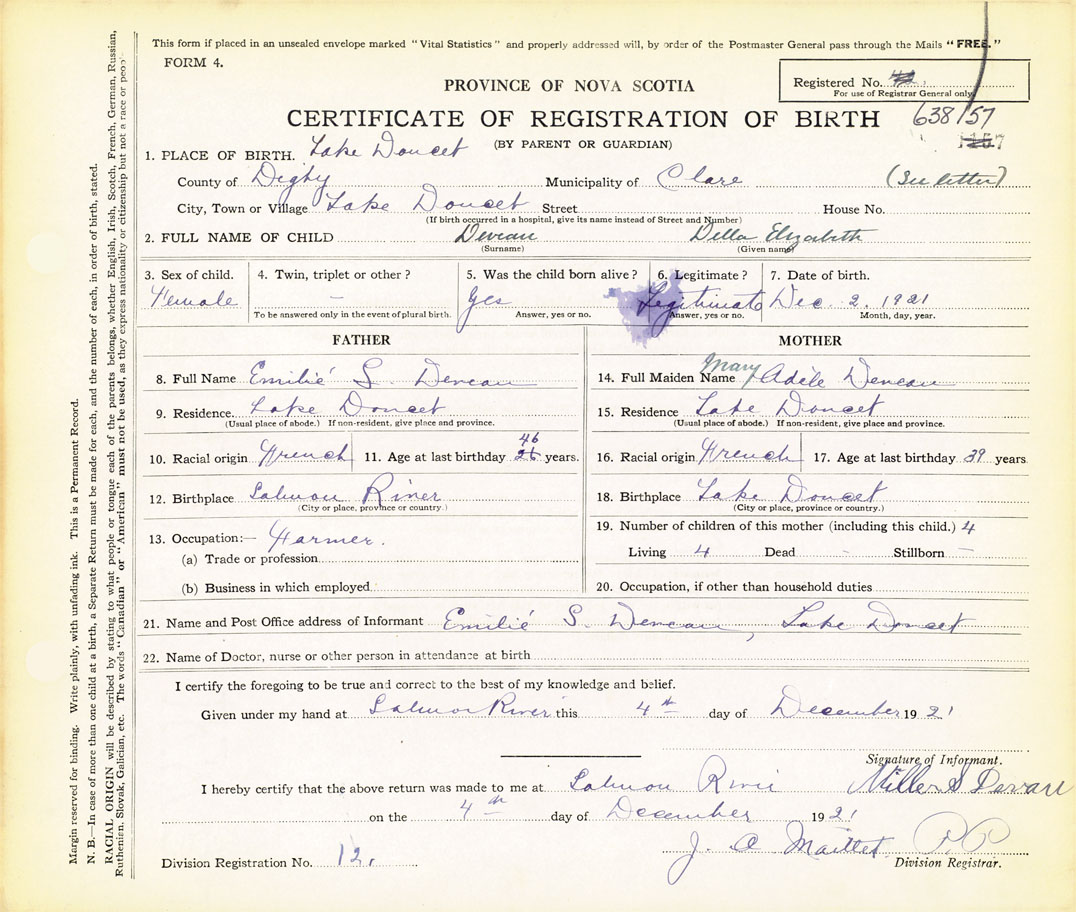 This form if placed in an unsealed envelope marked "Vital Statistics" and properly addressed will, by order of the Postmaster General pass through the Mails "FREE."
FORM 4.
PROVINCE OF NOVA SCOTIA
Registered No.
For use of Registrar General only.
CERTIFICATE OF REGISTRATION OF BIRTH
638/57
(BY PARENT OR GUARDIAN)
1. PLACE OF BIRTH. Lake Doucet
County of Digby Municipality of Clare (See letter)
City, Town or Village Lake Doucet Street House No.
(If birth occurred in a hospital, give its name instead of Street and Number)
2. FULL NAME OF CHILD Deveau Della Elizabeth
(Surname) (Given name)
3. Sex of child. 4. Twin, triplet or other? 5. Was the child born alive? 6. Legitimate? 7. Date of birth.
Female — Yes Legitimate Dec. 2. 1921
To be answered only in the event of plural birth. Answer, yes or no. Answer, yes or no. Month, day, year.
FATHER
8. Full Name Emilié S. Deveau
9. Residence. Lake Doucet
(Usual place of abode.) If non-resident, give place and province.
10. Racial origin French 11. Age at last birthday 46 years.
12. Birthplace Salmon River
(City or place, province or country.)
13. Occupation:— Farmer.
(a) Trade or profession
(b) Business in which employed
MOTHER
14. Full Maiden Name Mary Adéle Deveau
15. Residence Lake Doucet
(Usual place of abode.) If non-resident, give place and province.
16. Racial origin French 17. Age at last birthday 39 years
18. Birthplace Lake Doucet
(City or place, province or country.)
19. Number of children of this mother (including this child.) 4
Living 4 Dead - Stillborn —
20. Occupation, if other than household duties
21. Name and Post Office address of Informant Emilié S. Deveau, Lake Doucet
22. Name of Doctor, nurse or other person in attendance at birth
I certify the foregoing to be true and correct to the best of my knowledge and belief.
Given under my hand at Salmon River this 4th day of December 1921
Signature of Informant.
I hereby certify that the above return was made to me at Salmon River Miller S Devau
on the 4th day of December 1921
J. A Maillet
Division Registration No. 12. Division Registrar.
Margin reserved for binding. Write plainly, with unfading ink. This is a Permanent Record.
N. B.—In case of more than one child at a birth, a Separate Return must be made for each, and the number of each, in order of birth, stated.
RACIAL ORIGIN will be described by stating to what people or tongue each of the parents belongs, whether English, Irish, Scotch, French, German, Russian,
Ruthenian, Slovak, Galician, etc. The words "Canadian" or "American" must not be used, as they express nationality or citizenship but not a race or peop